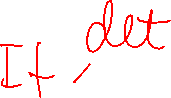 It, det